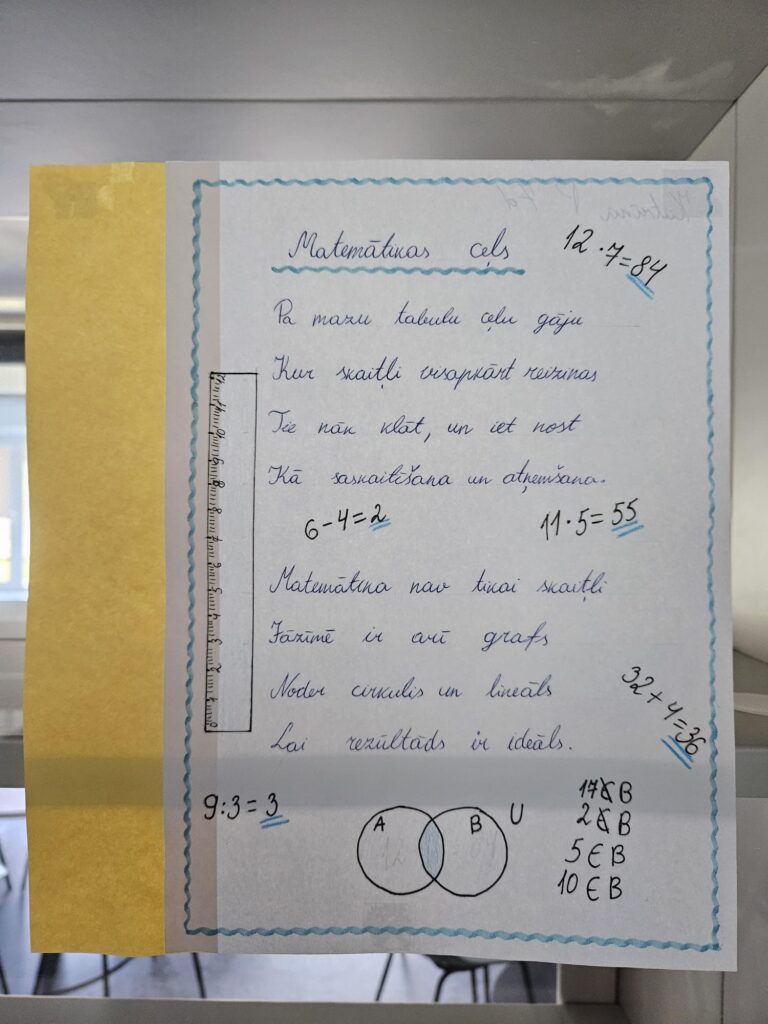 Matemātikas ceļš
12 · 7 = 84
Pa mazu tabulu ceļu gāju
Kur skaitļi visapkārt reizinas
Tie nāk klāt, un iet nost
Kā saskaitīšana un atņemšana.
6 - 4 = 2
11 · 5 = 55
Matemātika nav tikai skaitļi
Jāzīmē ir arī grafs
Noder cirkulis un lineāls
Lai rezūltāds ir ideāls.
32 + 4 = 36
9 : 3 = 3
A B U
17 ∉ B
2 ∉ B
5 ∈ B
10 ∈ B